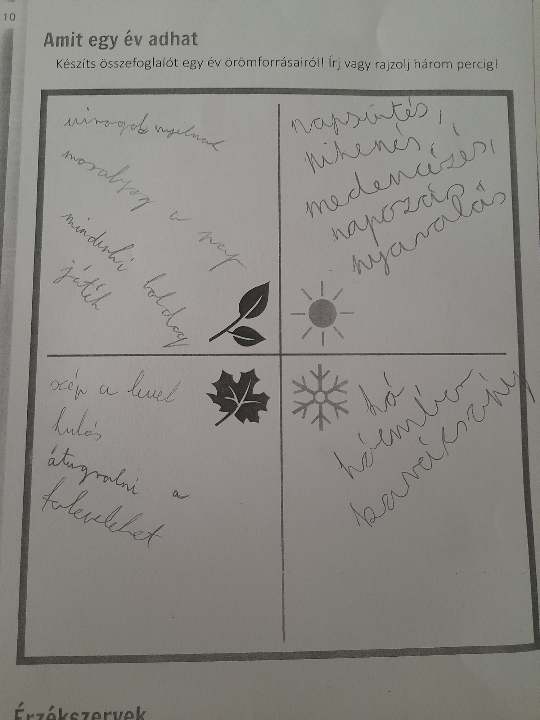 10
Amit egy év adhat
Készíts összefoglalót egy év örömforrásairól! Írj vagy rajzolj három percig!
virogok nyelnak
mosolyog a nap
mindenki boldog
játék
napsütés,
pihenés,
medencézés,
napozás
nyaralás
szép a level
hulás
átugralni a
faleveleket
hó
hóember
karácsony
Érzékszervek